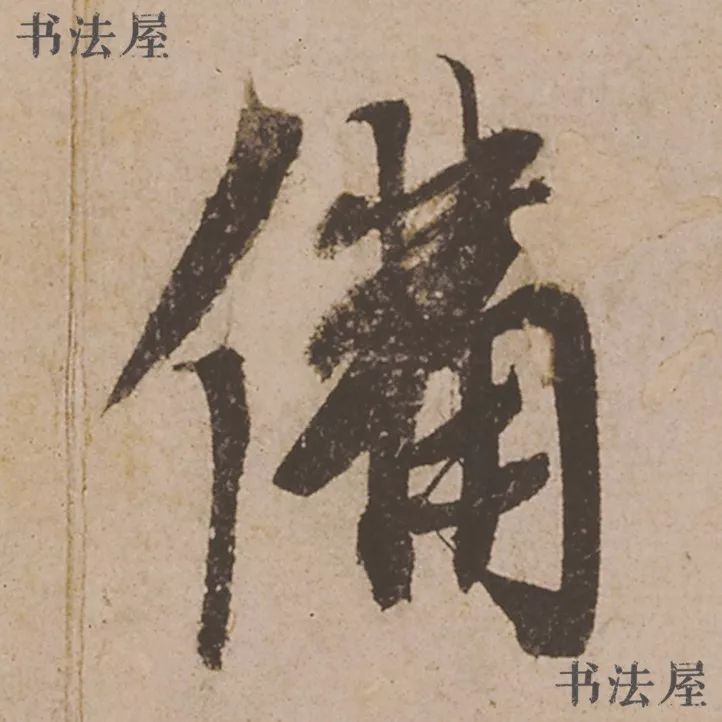 书法屋
備
书法屋